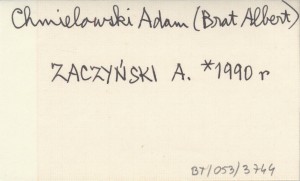 Chmielowski Adam (Brat Albert)
ZACZYŃSKI A. *1990 r
BT/053/3744